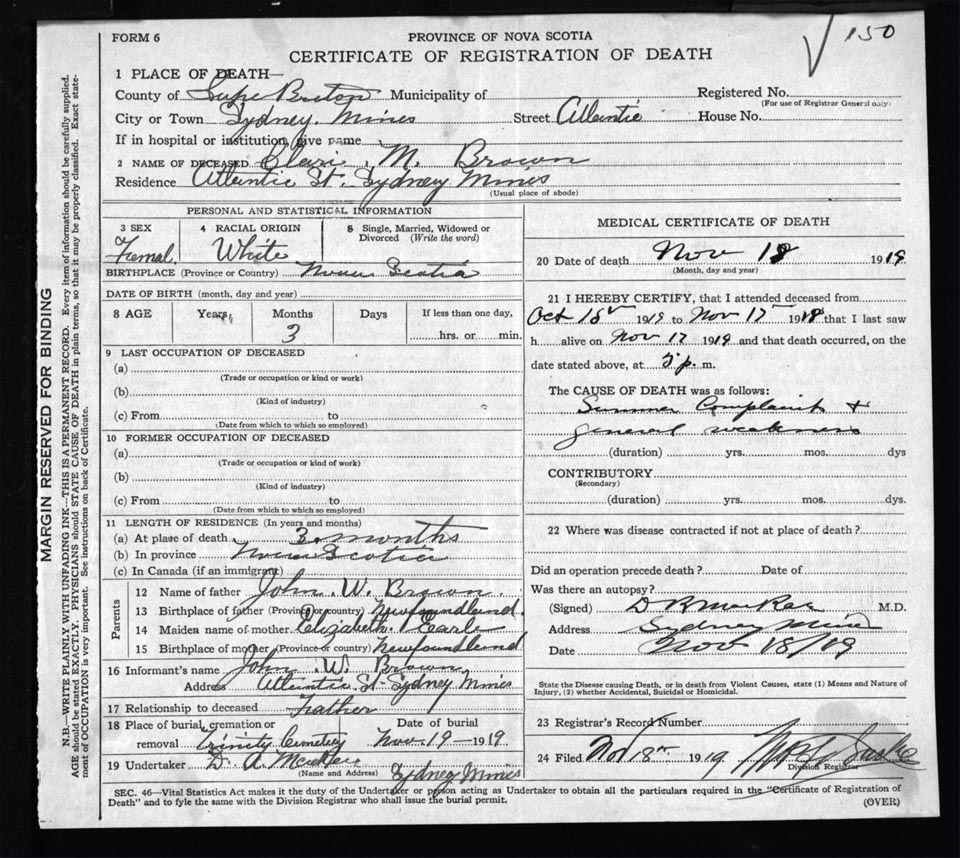 150
FORM 6
PROVINCE OF NOVA SCOTIA
CERTIFICATE OF REGISTRATION OF DEATH
1 PLACE OF DEATH—
County of Cape Breton Municipality of Registered No.
(For use of Registrar General only)
City or Town Sydney Mines Street Atlantic House No.
If in hospital or institution, give name
2 NAME OF DECEASED M. Brown
Residence Atlantic St. Sydney Mines
(Usual place of abode)
PERSONAL AND STATISTICAL INFORMATION
3 SEX 4 RACIAL ORIGIN 5 Single, Married, Widowed or Divorced (Write the word)
Femal. White
BIRTHPLACE (Province or Country) Nova Scotia
DATE OF BIRTH (month, day and year)
8 AGE Years Months Days If less than one day,
3 hrs. or min.
9 LAST OCCUPATION OF DECEASED
(a)
(Trade or occupation or kind or work)
(b)
(Kind of industry)
(c) From to
(Date from which to which so employed)
10 FORMER OCCUPATION OF DECEASED
(a)
(Trade or occupation or kind of work)
(b)
(Kind of industry)
(c) From to
(Date from which to which so employed)
11 LENGTH OF RESIDENCE (In years and months)
(a) At place of death 3 months
(b) In province Nova Scotia
(c) In Canada (if an immigrant)
Parents
12 Name of father John W. Brown.
13 Birthplace of father (Province or country) Newfoundland.
14 Maiden name of mother Elizabeth Earle
15 Birthplace of mother (Province or country) Newfoundland
16 Informant's name John W. Brown
Address Atlantic St Sydney Mines
17 Relationship to deceased Father
18 Place of burial, cremation or removal Trinity Cemetery Date of burial Nov 19 - 1919
19 Undertaker D. A. Sydney Mines
(Name and Address)
MEDICAL CERTIFICATE OF DEATH
20 Date of death Nov 18 1919
(Month, day and year)
21 I HEREBY CERTIFY, that I attended deceased from
Oct 1919 to Nov 17 that I last saw
h alive on Nov 17 1919 and that death occurred, on the
date stated above, at 5 p. m.
The CAUSE OF DEATH was as follows:
Summer Complaint +
general weakness
(duration) yrs. mos. dys
CONTRIBUTORY
(Secondary)
(duration) yrs. mos. dys.
22 Where was disease contracted if not at place of death?
Did an operation precede death? Date of
Was there an autopsy?
(Signed) M.D.
Address Sydney Mines
Date Nov 18/19
State the Disease causing Death, or in death from Violent Causes, state (1) Means and Nature of
Injury, (2) whether Accidental, Suicidal or Homicidal.
23 Registrar's Record Number
24 Filed Nov 18th 1919
Division Registrar
SEC. 46—Vital Statistics Act makes it the duty of the Undertaker or person acting as Undertaker to obtain all the particulars required in the "Certificate of Registration of
Death" and to fyle the same with the Division Registrar who shall issue the burial permit.
(OVER)
MARGIN RESERVED FOR BINDING
N.B.—WRITE PLAINLY WITH UNFADING INK—THIS IS A PERMANENT RECORD. Every item of information should be carefully supplied.
AGE should be stated EXACTLY. PHYSICIANS should STATE CAUSE OF DEATH in plain terms, so that it may be properly classified. Exact state-
ment of OCCUPATION is very important. See instructions on back of Certificate.